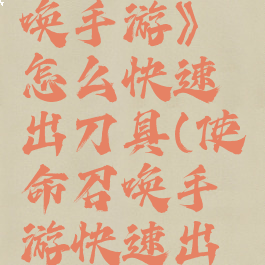 唤手游》
怎么快速
出刀具(使
命召唤手
游快速出